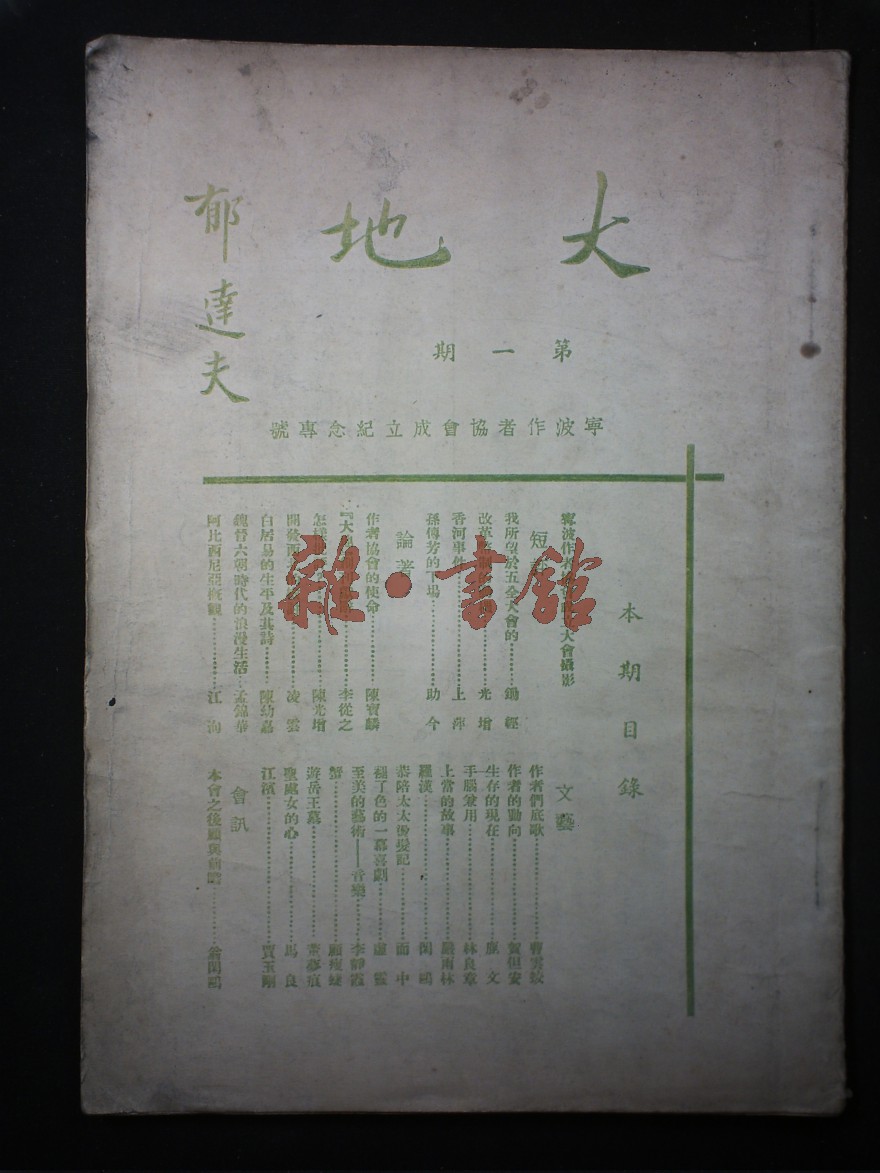 大地
郁達夫
第一期
寧波作者協會成立紀念專號
本期目錄
寧波作者 大會攝影
短評
我所望於五全大會的………鋤輕
改革 光增
香河事件 上萍
孫傳芳的下場………助今
論著
作者協會的使命………陳寶麟
『大 李從之
怎樣 陳光增
開發西 凌雲
白居易的生平及其詩………陳幼嘉
魏晉六朝時代的浪漫生活…孟錦華
阿比西尼亞概觀………江洵
文藝
作者們底歌………曹雲蛟
作者的動向………賀但安
生存的現在………庭文
手腦兼用………林良章
上當的故事………嚴雨林
羅漢………閑鷗
恭陪太太燙髮記………而中
褪了色的一幕喜劇………盧靈
至美的藝術——音樂………李靜霞
蟹………
游岳王墓………董夢痕
聖處女的心………馬良
江濱………賈玉剛
會訊
本會之後顧與前瞻………翁閑鷗
雜·書館